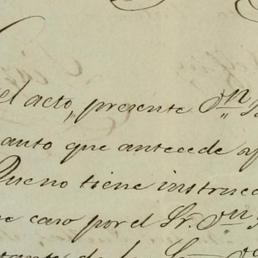 el acto, presente Dn
anto que antecede
Bueno tiene instruc
e caso por el Sr. Dn